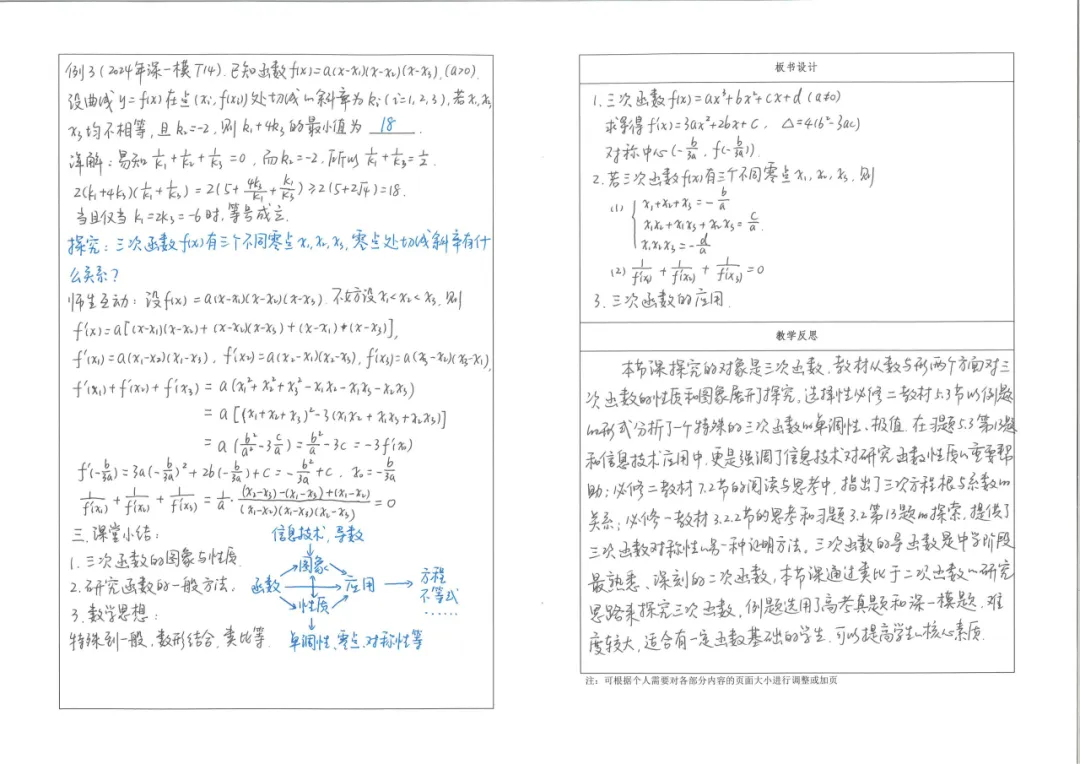 例3(2024年深一模T14).已知函数f(x)=a(x-x₁)(x-x₂)(x-x₃).(a>0).
设曲线y=f(x)在点(xᵢ,f(xᵢ))处切线的斜率为kᵢ(i=1,2,3),若x₁,x₂,
x₃均不相等,且k₂=-2,则k₁+4k₃的最小值为 18 .
详解:易知1/k₁+1/k₂+1/k₃=0,而k₂=-2,所以1/k₁+1/k₃=1/2.
2(k₁+4k₃)(1/k₁+1/k₃)=2(5+4k₃/k₁+k₁/k₃)≥2(5+2√4)=18.
当且仅当k₁=2k₃=-6时,等号成立.
探究:三次函数f(x)有三个不同零点x₁,x₂,x₃,零点处切线斜率有什
么关系?
师生互动:设f(x)=a(x-x₁)(x-x₂)(x-x₃).不妨设x₁<x₂<x₃.则
f'(x)=a[(x-x₁)(x-x₂)+(x-x₂)(x-x₃)+(x-x₁)*(x-x₃)],
f'(x₁)=a(x₁-x₂)(x₁-x₃),f'(x₂)=a(x₂-x₁)(x₂-x₃),f'(x₃)=a(x₃-x₂)(x₃-x₁),
f'(x₁)+f'(x₂)+f'(x₃)=a(x₁²+x₂²+x₃²-x₁x₂-x₁x₃-x₂x₃)
=a[(x₁+x₂+x₃)²-3(x₁x₂+x₁x₃+x₂x₃)]
=a(b²/a²-3c/a)=b²/a-3c=-3f'(x₀)
f'(-b/3a)=3a(-b/3a)²+2b(-b/3a)+c=-b²/3a+c,x₀=-b/3a
1/f'(x₁)+1/f'(x₂)+1/f'(x₃)=1/a·((x₂-x₃)-(x₁-x₃)+(x₁-x₂))/((x₁-x₂)(x₁-x₃)(x₂-x₃))=0
三.课堂小结:
1.三次函数的图象与性质.
2.研究函数的一般方法.
3.数学思想:
特殊到一般,数形结合,类比等.
信息技术,导数
图象
函数 应用 方程
不等式
……
性质
单调性、零点、对称性等
板书设计
1.三次函数f(x)=ax³+bx²+cx+d(a≠0)
求导得f'(x)=3ax²+2bx+c,△=4(b²-3ac)
对称中心(-b/3a,f(-b/3a)).
2.若三次函数f(x)有三个不同零点x₁,x₂,x₃.则
(1) x₁+x₂+x₃=-b/a
x₁x₂+x₁x₃+x₂x₃=c/a.
x₁x₂x₃=-d/a
(2) 1/f'(x₁)+1/f'(x₂)+1/f'(x₃)=0
3.三次函数的应用.
教学反思
本节课探究的对象是三次函数.教材从数与形两个方面对三
次函数的性质和图象展开了探究,选择性必修二教材5.3节以例题
的形式分析了一个特殊的三次函数的单调性、极值.在习题5.3第13题
和信息技术应用中,更是强调了信息技术对研究函数性质的重要帮
助;必修二教材7.2节的阅读与思考中,指出了三次方程根与系数的
关系;必修一教材3.2.2节的思考和习题3.2第13题的探索,提供了
三次函数对称性的另一种证明方法.三次函数的导函数是中学阶段
最熟悉、深刻的二次函数,本节课通过类比于二次函数的研究
思路来探究三次函数,例题选用了高考真题和深一模题.难
度较大,适合有一定函数基础的学生.可以提高学生的核心素质.
注:可根据个人需要对各部分内容的页面大小进行调整或加页